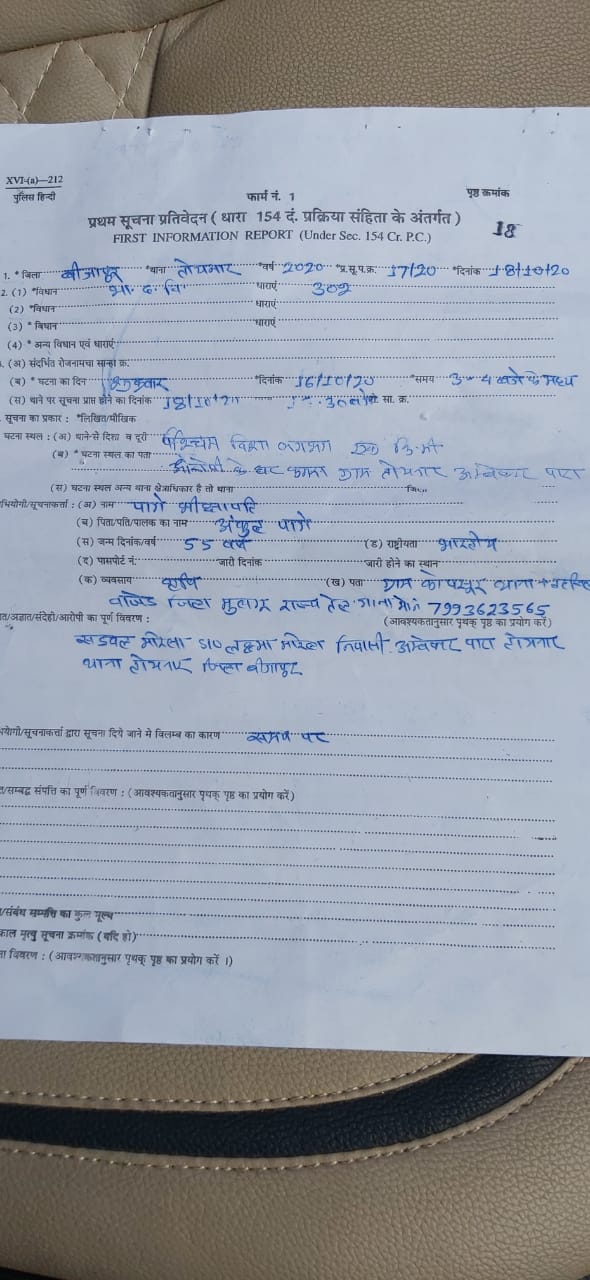 XVI-(a)—212
पुलिस हिन्दी
फार्म नं. 1
पृष्ठ क्रमांक
18
प्रथम सूचना प्रतिवेदन ( धारा 154 दं. प्रक्रिया संहिता के अंतर्गत )
FIRST INFORMATION REPORT (Under Sec. 154 Cr. P.C.)
1. * जिला बीजापुर *थाना तोयनार *वर्ष 2020 *प्र.सू.प.क्र. 17/20 *दिनांक 18/10/20
2. (1) *विधान भा. द. वि धाराएं 302
(2) *विधान धाराएं
(3) * विधान धाराएं
(4) * अन्य विधान एवं धाराएं
. (अ) संदर्भित रोजनामचा सान्हा क्र.
(ब) * घटना का दिन शुक्रवार *दिनांक 16/10/20 *समय 3 - 4 बजे के मध्य
(स) थाने पर सूचना प्राप्त होने का दिनांक 18/10/20 सा. क्र.
. सूचना का प्रकार : *लिखित/मौखिक
घटना स्थल : (अ) थाने से दिशा व दूरी पश्चिम दिशा लगभग एक कि.मी
(ब) * घटना स्थल का पता
के घर ग्राम तोयनार पारा
(स) घटना स्थल अन्य थाना क्षेत्राधिकार है तो थाना जिला
भियोगी/सूचनाकर्त्ता : (अ) नाम पागे श्रीछापति
(ब) पिता/पति/पालक का नाम अंकुल पागे
(स) जन्म दिनांक/वर्ष 55 वर्ष (ड) राष्ट्रीयता भारतीय
(द) पासपोर्ट नं. जारी दिनांक जारी होने का स्थान
(क) व्यवसाय कृषि (ख) पता ग्राम थाना
जिला मुलुगु राज्य तेलंगाना मो नं 7993623565
त/अज्ञात/संदेही/आरोपी का पूर्ण विवरण : (आवश्यकतानुसार पृथक् पृष्ठ का प्रयोग करें)
S/O निवासी पारा तोयनार
थाना तोयनार जिला बीजापुर
भयोगी/सूचनाकर्त्ता द्वारा सूचना दिये जाने मे विलम्ब का कारण समय पर
/सम्बद्ध संपत्ति का पूर्ण विवरण : (आवश्यकतानुसार पृथक् पृष्ठ का प्रयोग करें)
/संबंध सम्पत्ति का कुल मूल्य
काल मृत्यु सूचना क्रमांक (यदि हो)
ना विवरण : (आवश्यकतानुसार पृथक् पृष्ठ का प्रयोग करें ।)